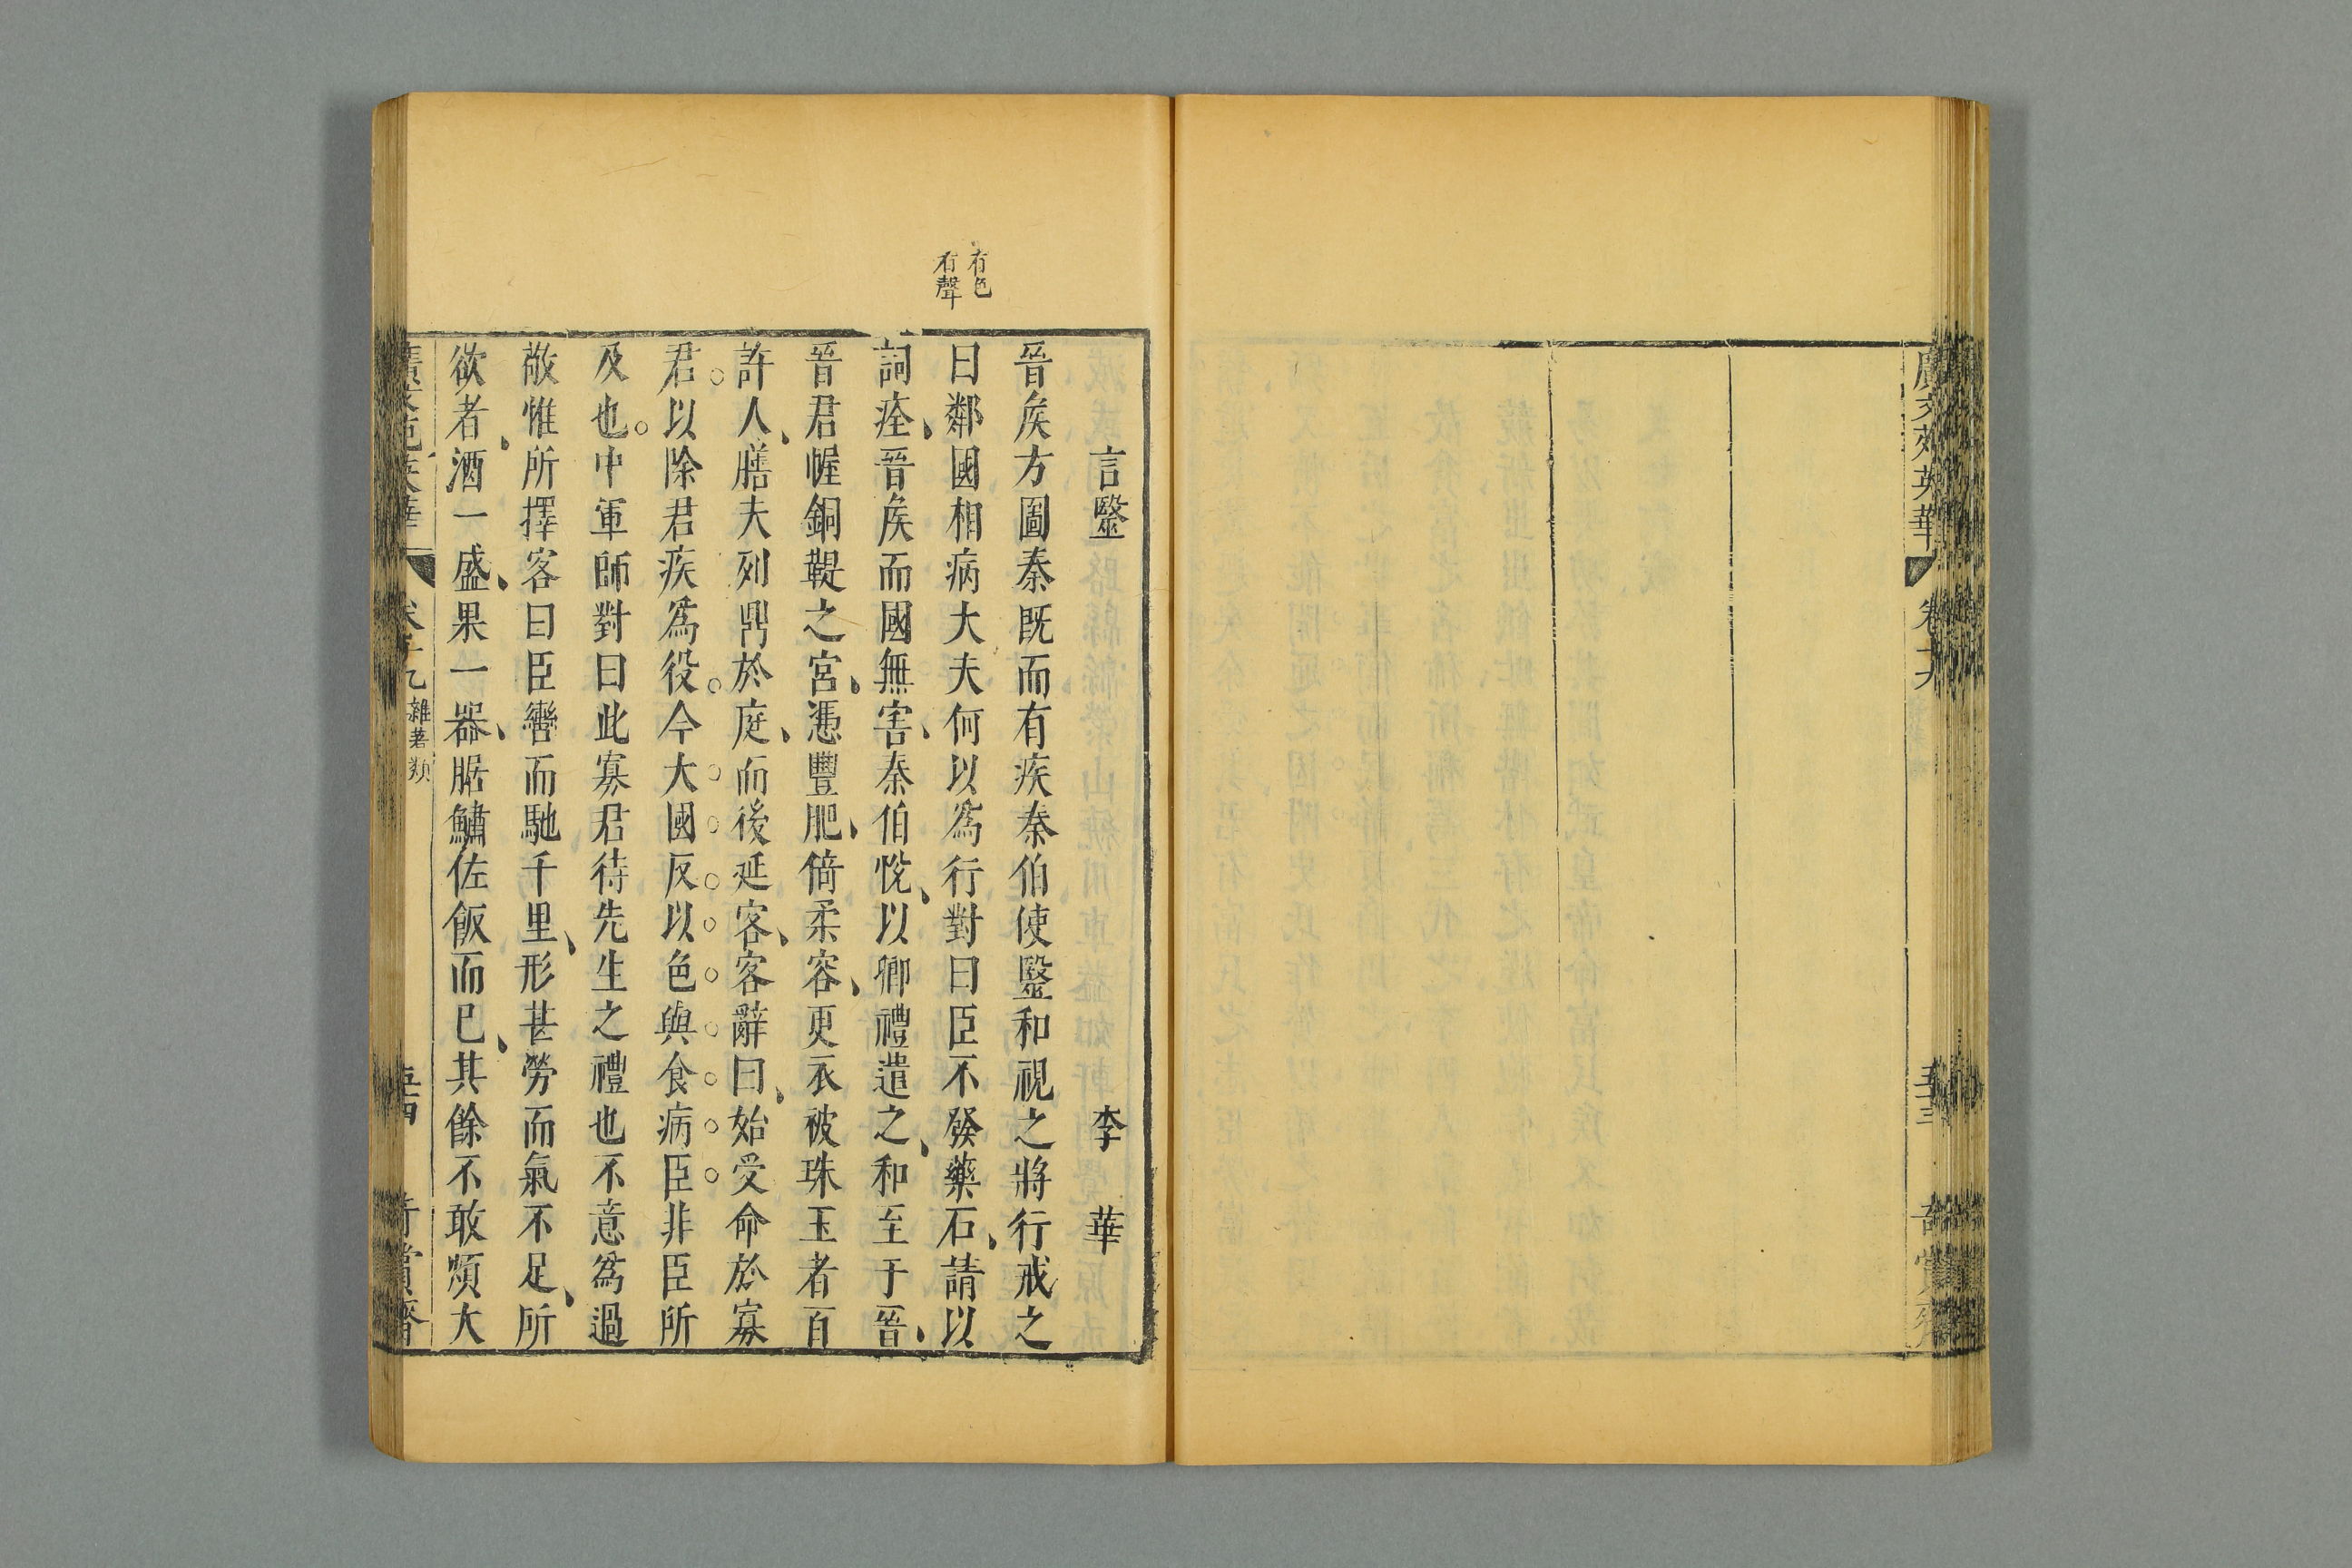 廣文苑英華 卷十九 五十三 奇賞齋
有色
有聲
言毉 李華
晉矦方圖秦既而有疾秦伯使毉和視之將行戒之
曰鄰國相病大夫何以爲行對曰臣不發藥石請以
詞痊晉矦而國無害秦伯悅以卿禮遣之和至于晉
晉君幄銅鞮之宮憑豐肥倚柔容更衣被珠玉者百
許人膳夫列鼎於庭而後延客客辭曰始受命於寡
君以除君疾爲役今大國反以色與食病臣非臣所
及也中軍師對曰此寡君待先生之禮也不意爲過
敵惟所擇客曰臣轡而馳千里形甚勞而氣不足所
欲者酒一盛果一器腒鱐佐飯而已其餘不敢煩大
廣文苑英華 卷十九 雜著類 五十四 奇賞齋